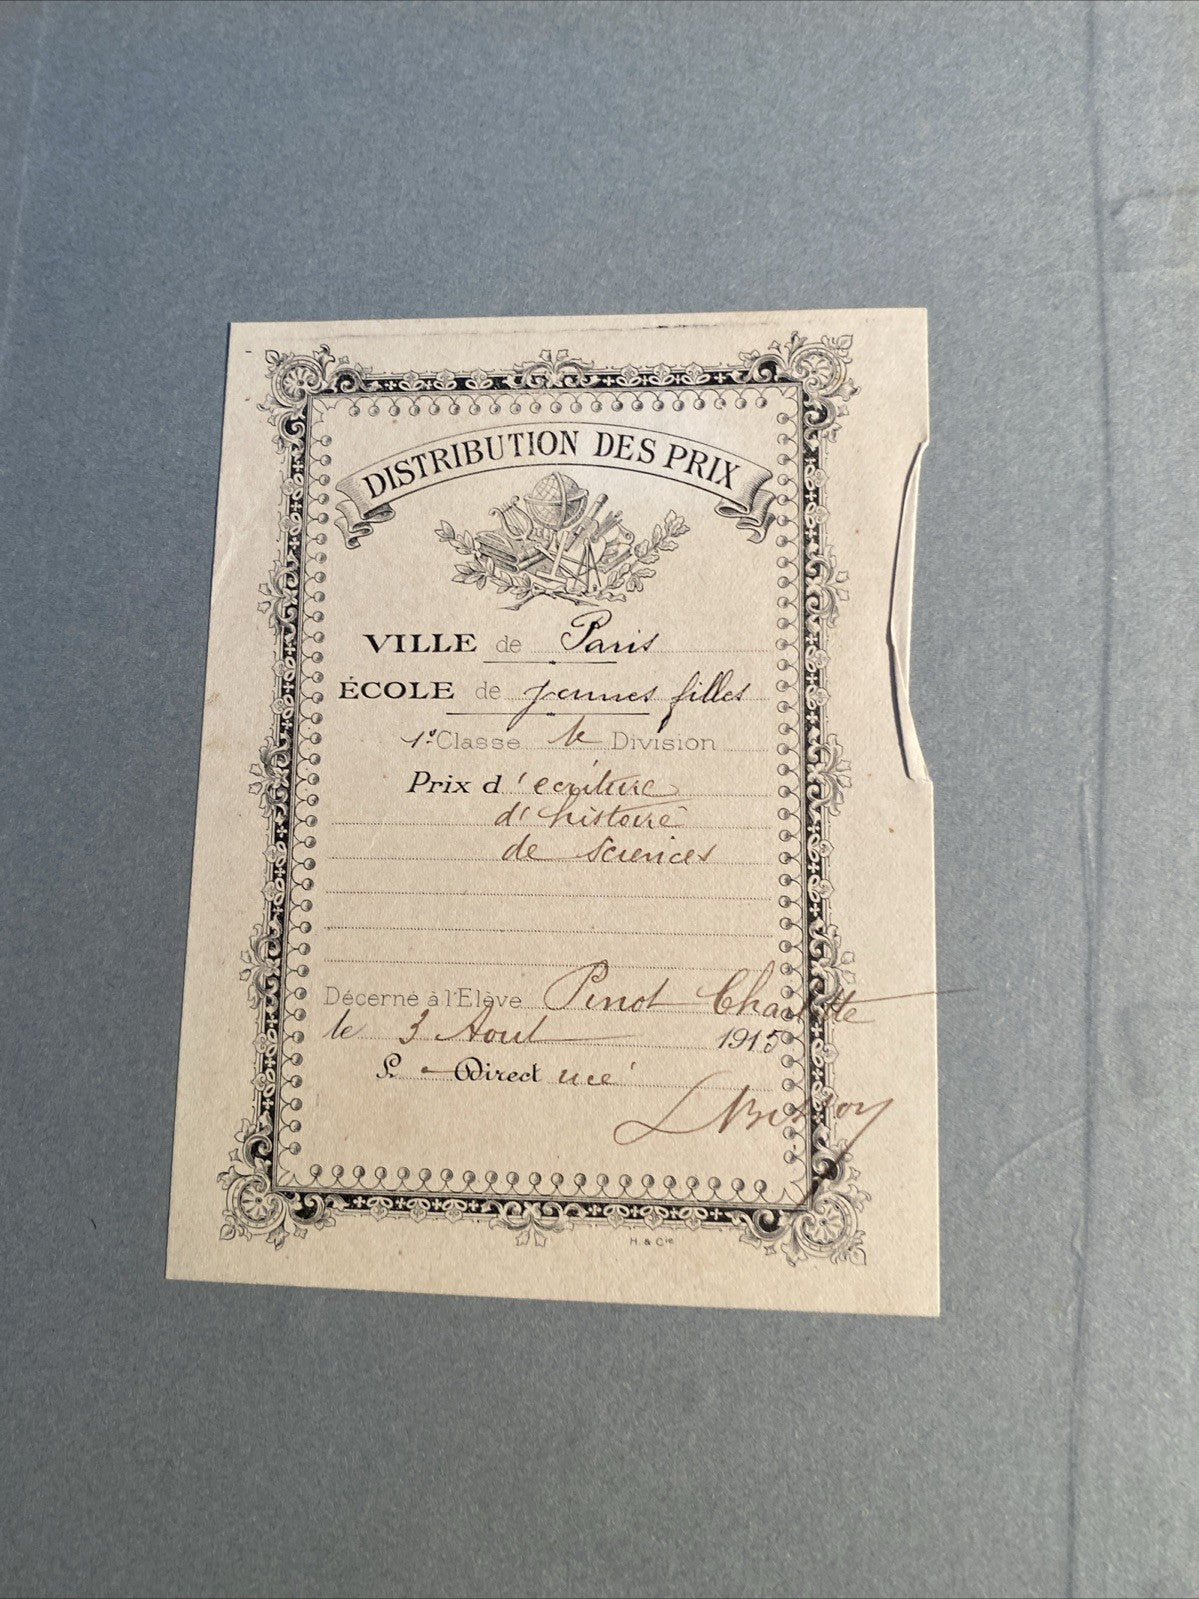 DISTRIBUTION DES PRIX
VILLE de Paris
ÉCOLE de jeunes filles
1e Classe 1e Division
Prix d'écriture
d'histoire
de sciences
Décerné à l'Elève Pinot Charlotte
le 3 Aout 1915
L Directrice
H. & Cie